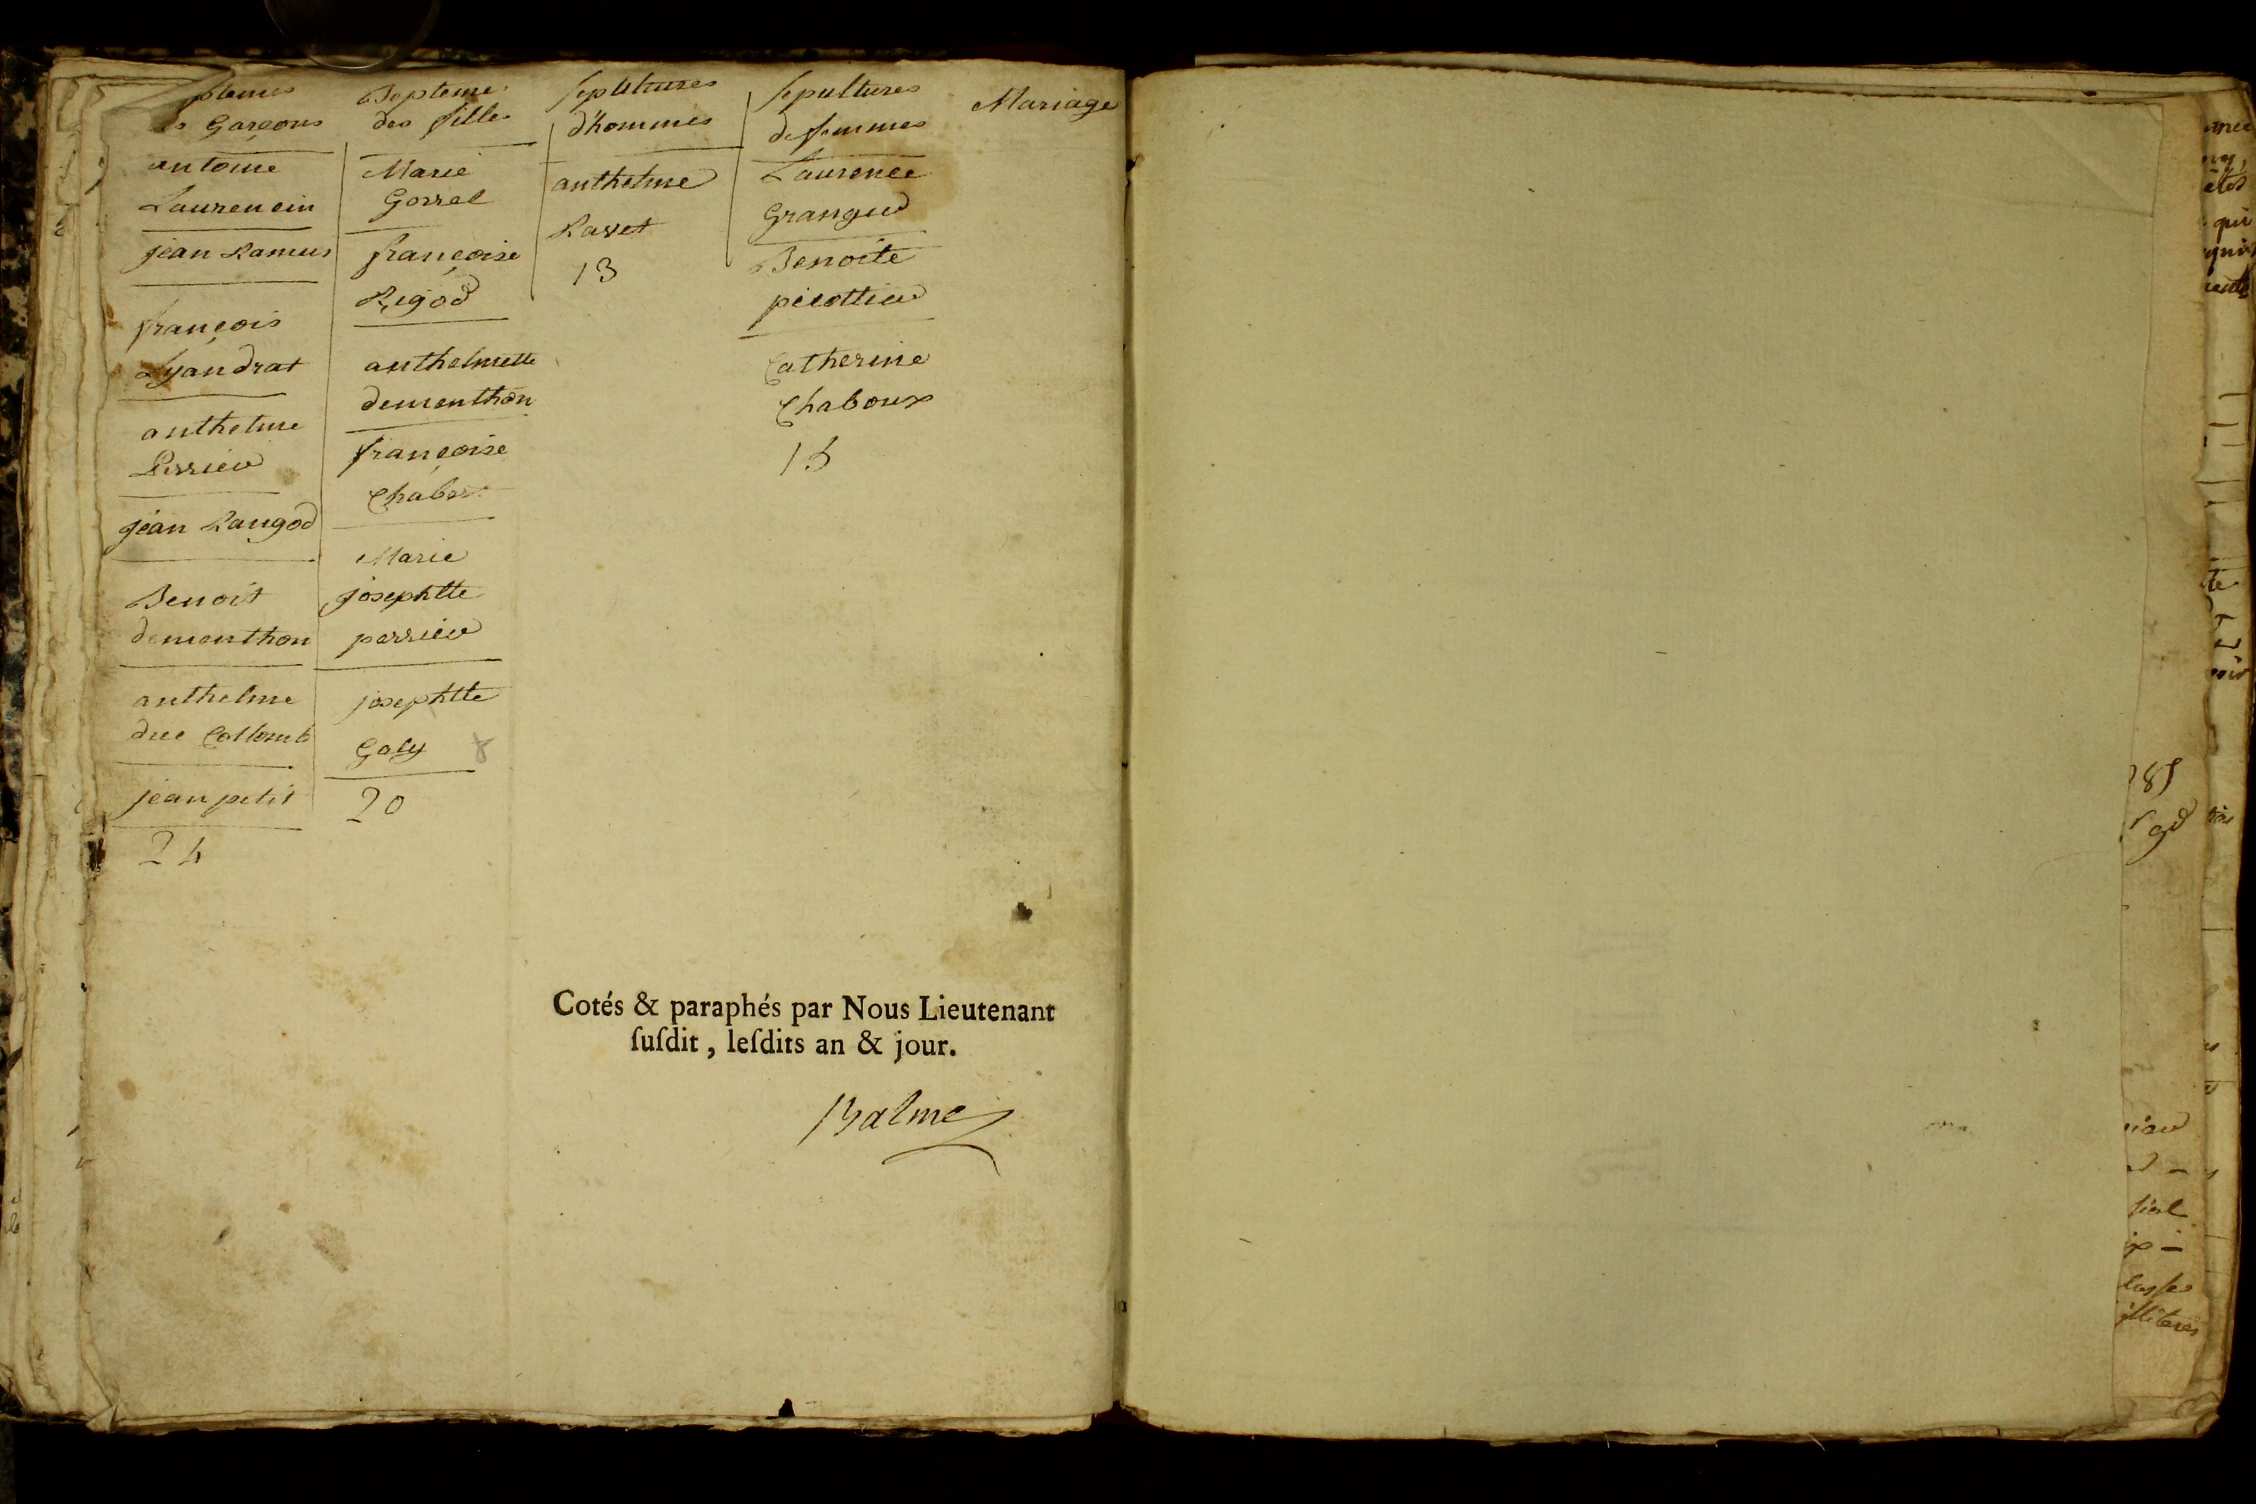 Baptemes
des Garçons
antoine
Laurencin
jean Ramus
françois
Lyandrat
anthelme
Perrier
jean Rangod
Benoit
demonthon
anthelme
duc Collomb
jean petit
24
Bapteme
des filles
Marie
Gorrel
françoise
Rigod
anthelmette
dementhon
françoise
Chabert
Marie
josephtte
perrier
josephtte
Goly
20
sepultures
d'hommes
anthelme
Ravet
13
sepultures
de femmes
Laurence
Granger
Benoite
picottier
Catherine
Chaboux
15
Mariage
Cotés & paraphés par Nous Lieutenant
ſuſdit, leſdits an & jour.
Balme